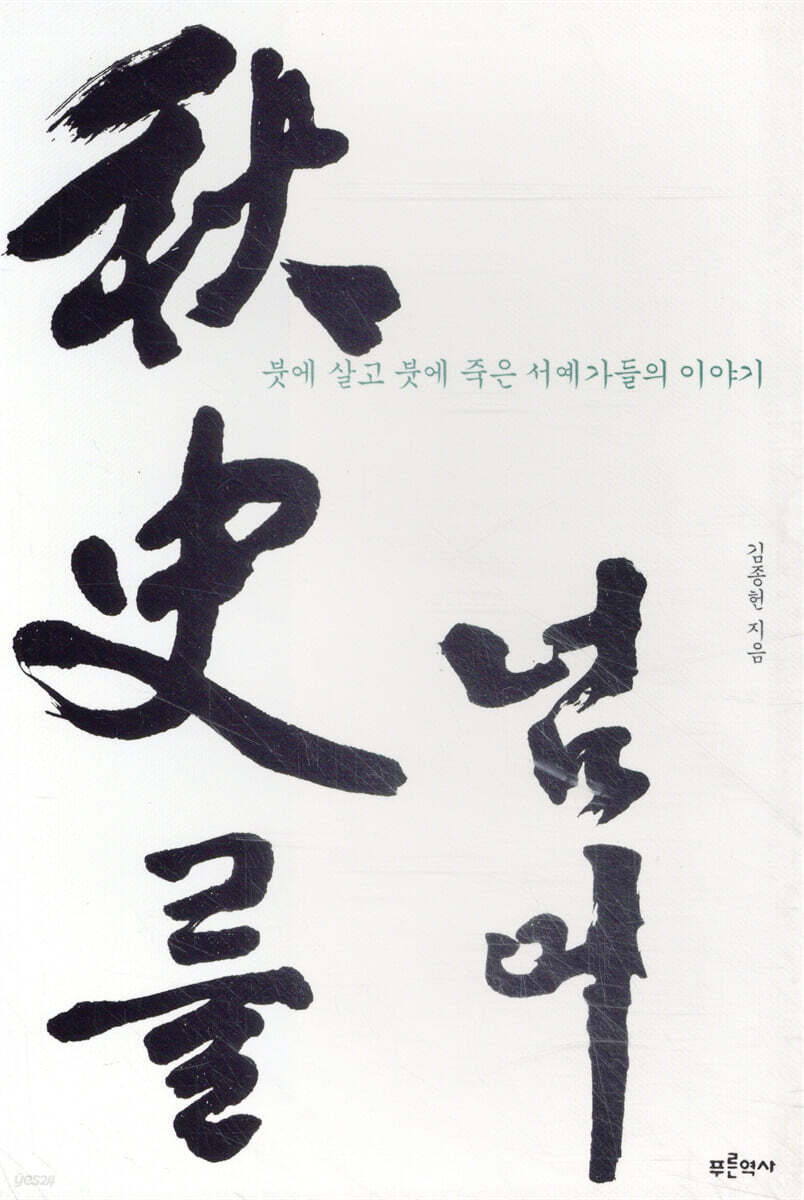 秋史를
넘어
붓에 살고 붓에 죽은 서예가들의 이야기
김종헌 지음
푸른역사
yes24